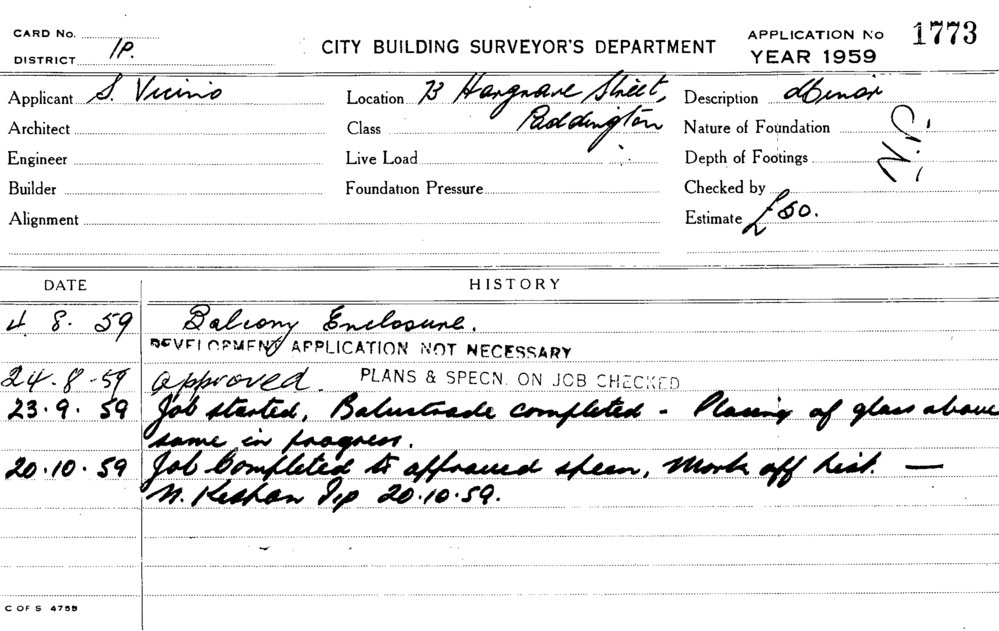 CARD No.
DISTRICT 1P.
CITY BUILDING SURVEYOR'S DEPARTMENT
APPLICATION No 1773
YEAR 1959
Applicant S. Vicino
Location 73 Hargrave Street, Paddington
Description Minor
Architect
Class
Nature of Foundation
Engineer
Live Load
Depth of Footings
N.P.
Builder
Foundation Pressure
Checked by
Alignment
Estimate £50.
DATE HISTORY
4 8. 59 Balcony Enclosure.
DEVELOPMENT APPLICATION NOT NECESSARY
24.8.59 approved. PLANS & SPECN. ON JOB CHECKED
23.9.59 Job started, Balustrade completed - Placing of glass above
same in progress.
20.10.59 Job Completed to approved specn, Mark off list. —
N. 20.10.59.
C OF S 475B